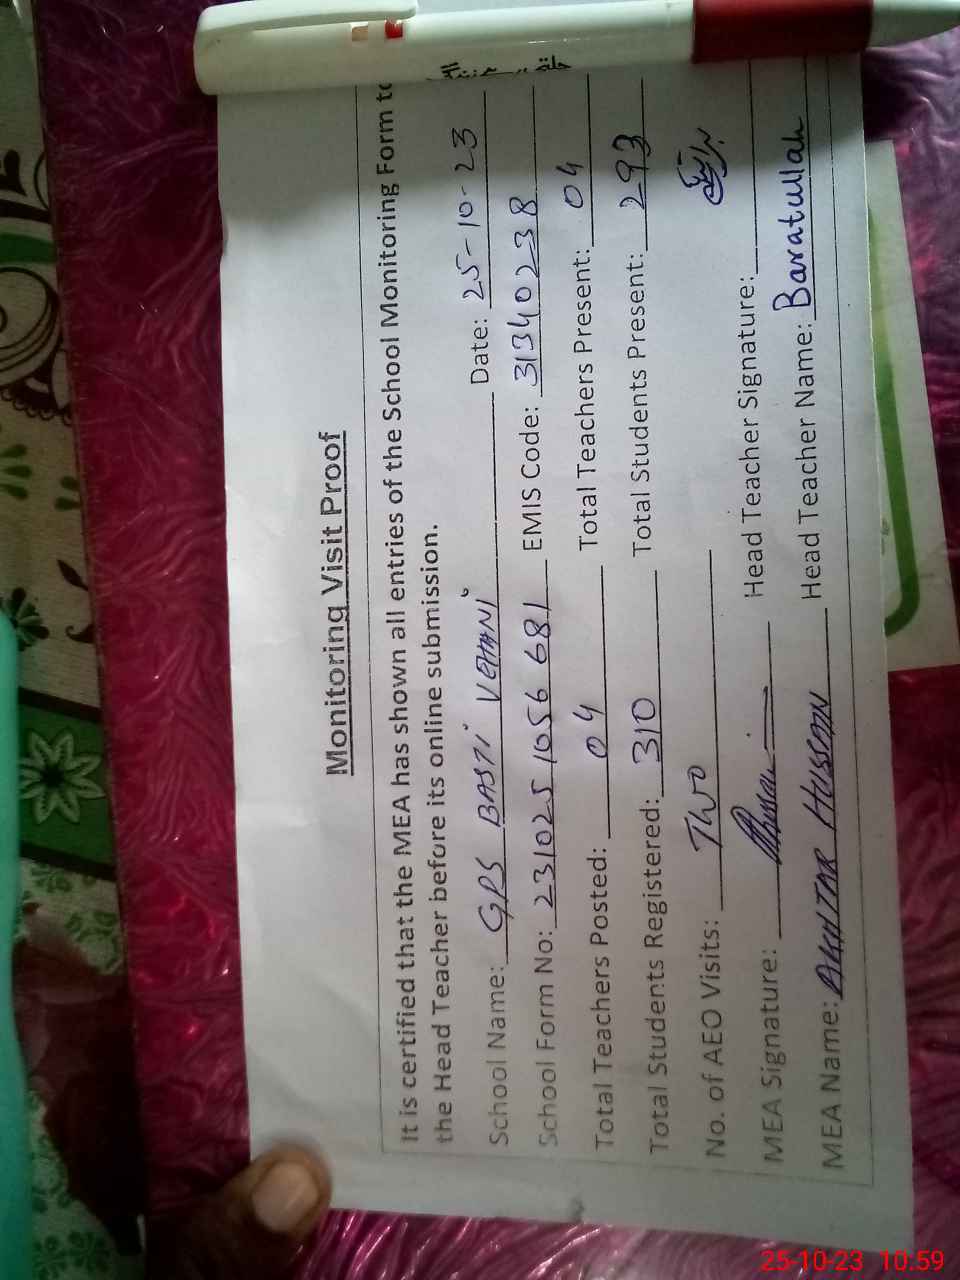 Monitoring Visit Proof
It is certified that the MEA has shown all entries of the School Monitoring Form to
the Head Teacher before its online submission.
School Name: GPS BASTI VEHANI Date: 25-10-23
School Form No: 231025 1056 681 EMIS Code: 31340238
Total Teachers Posted: 04 Total Teachers Present: 04
Total Students Registered: 310 Total Students Present: 293
No. of AEO Visits: Two
MEA Signature: Head Teacher Signature:
MEA Name: AKHTAR HUSSAIN Head Teacher Name: Baratullah
25-10-23 10:59